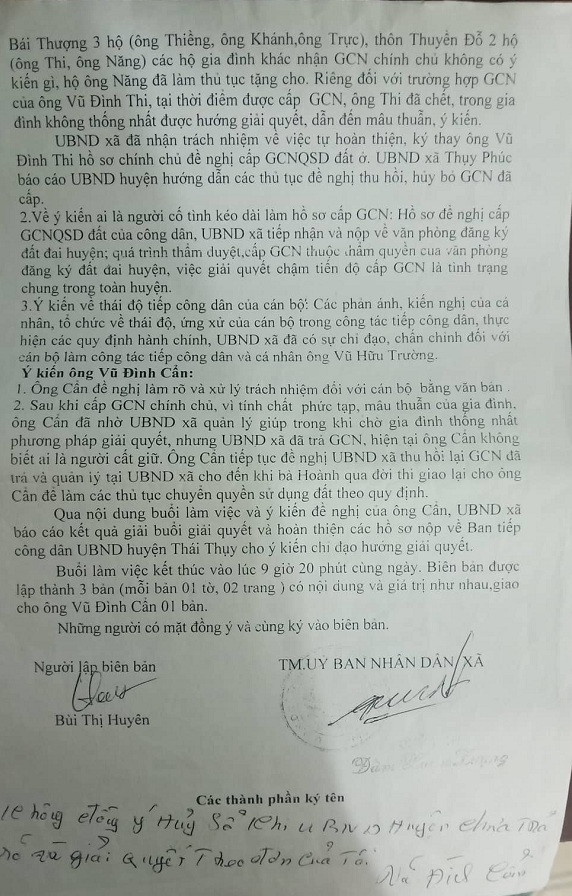 Bái Thượng 3 hộ (ông Thiềng, ông Khánh,ông Trực), thôn Thuyền Đỗ 2 hộ
(ông Thi, ông Năng) các hộ gia đình khác nhận GCN chính chủ không có ý
kiến gì, hộ ông Năng đã làm thủ tục tặng cho. Riêng đối với trường hợp GCN
của ông Vũ Đình Thi, tại thời điểm được cấp GCN, ông Thi đã chết, trong gia
đình không thống nhất được hướng giải quyết, dẫn đến mâu thuẫn, ý kiến.
UBND xã đã nhận trách nhiệm về việc tự hoàn thiện, ký thay ông Vũ
Đình Thi hồ sơ chính chủ đề nghị cấp GCNQSD đất ở. UBND xã Thụy Phúc
báo cáo UBND huyện hướng dẫn các thủ tục đề nghị thu hồi, hủy bỏ GCN đã
cấp.
2.Về ý kiến ai là người cố tình kéo dài làm hồ sơ cấp GCN: Hồ sơ đề nghị cấp
GCNQSD đất của công dân, UBND xã tiếp nhận và nộp về văn phòng đăng ký
đất đai huyện; quá trình thẩm duyệt,cấp GCN thuộc thẩm quyền của văn phòng
đăng ký đất đai huyện, việc giải quyết chậm tiến độ cấp GCN là tình trạng
chung trong toàn huyện.
3.Ý kiến về thái độ tiếp công dân của cán bộ: Các phản ánh, kiến nghị của cá
nhân, tổ chức về thái độ, ứng xử của cán bộ trong công tác tiếp công dân, thực
hiện các quy định hành chính, UBND xã đã có sự chỉ đạo, chấn chỉnh đối với
cán bộ làm công tác tiếp công dân và cá nhân ông Vũ Hữu Trường.
Ý kiến ông Vũ Đình Cần:
1. Ông Cần đề nghị làm rõ và xử lý trách nhiệm đối với cán bộ bằng văn bản .
2. Sau khi cấp GCN chính chủ, vì tính chất phức tạp, mâu thuẫn của gia đình,
ông Cần đã nhờ UBND xã quản lý giúp trong khi chờ gia đình thống nhất
phương pháp giải quyết, nhưng UBND xã đã trả GCN, hiện tại ông Cần không
biết ai là người cất giữ. Ông Cần tiếp tục đề nghị UBND xã thu hồi lại GCN đã
trả và quản lý tại UBND xã cho đến khi bà Hoành qua đời thì giao lại cho ông
Cần để làm các thủ tục chuyển quyền sử dụng đất theo quy định.
Qua nội dung buổi làm việc và ý kiến đề nghị của ông Cần, UBND xã
báo cáo kết quả giải buổi giải quyết và hoàn thiện các hồ sơ nộp về Ban tiếp
công dân UBND huyện Thái Thụy cho ý kiến chỉ đạo hướng giải quyết.
Buổi làm việc kết thúc vào lúc 9 giờ 20 phút cùng ngày. Biên bản được
lập thành 3 bản (mỗi bản 01 tờ, 02 trang ) có nội dung và giá trị như nhau,giao
cho ông Vũ Đình Cần 01 bản.
Những người có mặt đồng ý và cùng ký vào biên bản.
Người lập biên bản
TM.UỶ BAN NHÂN DÂN XÃ
Bùi Thị Huyên
Các thành phần ký tên
không đồng ý Hủy Sổ Khi UBND Huyện chưa Trả
và giải Quyết Theo đơn Của Tôi
Vũ Đình Cần